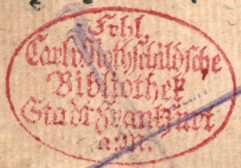 Frhl.
Carl v. Rothschild'sche
Bibliothek
Stadt Frankfurt
a. M.